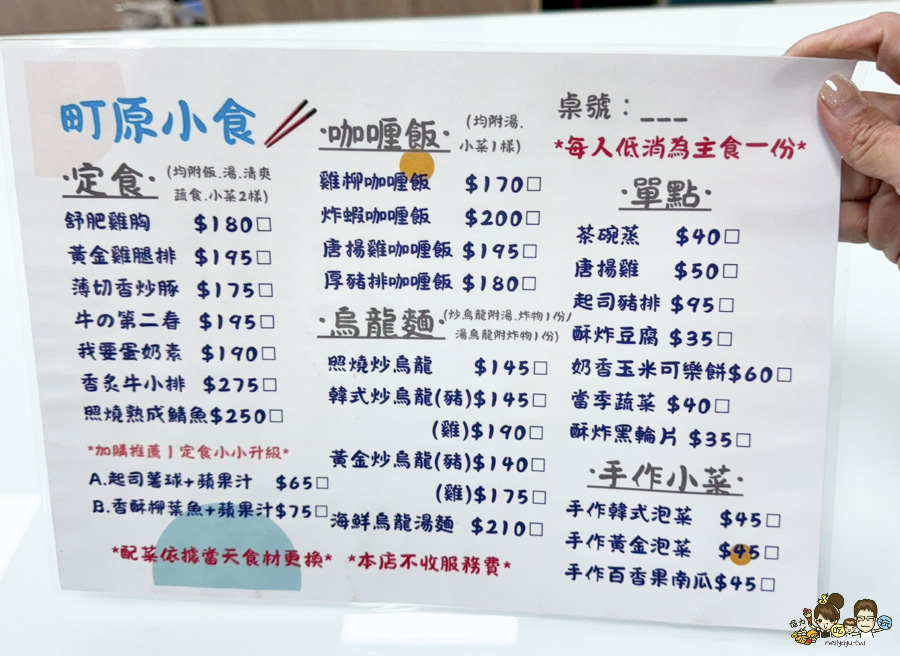 町原小食
·定食·(均附飯.湯.清爽
蔬食.小菜2樣)
舒肥雞胸 $180□
黃金雞腿排 $195□
薄切香炒豚 $175□
牛の第二春 $195□
我要蛋奶素 $190□
香炙牛小排 $275□
照燒熟成鯖魚$250□
*加購推薦|定食小小升級*
A.起司薯球+蘋果汁 $65□
B.香酥柳葉魚+蘋果汁$75□
*配菜依據當天食材更換* *本店不收服務費*
·咖哩飯·(均附湯.
小菜1樣)
雞柳咖哩飯 $170□
炸蝦咖哩飯 $200□
唐揚雞咖哩飯 $195□
厚豬排咖哩飯 $180□
·烏龍麵·(炒烏龍附湯.炸物1份/
湯烏龍附炸物1份)
照燒炒烏龍 $145□
韓式炒烏龍(豬)$145□
(雞)$190□
黃金炒烏龍(豬)$140□
(雞)$175□
海鮮烏龍湯麵 $210□
桌號:___
*每人低消為主食一份*
·單點·
茶碗蒸 $40□
唐揚雞 $50□
起司豬排 $95□
酥炸豆腐 $35□
奶香玉米可樂餅$60□
當季蔬菜 $40□
酥炸黑輪片 $35□
·手作小菜·
手作韓式泡菜 $45□
手作黃金泡菜 $45□
手作百香果南瓜$45□
nellydyu.tw